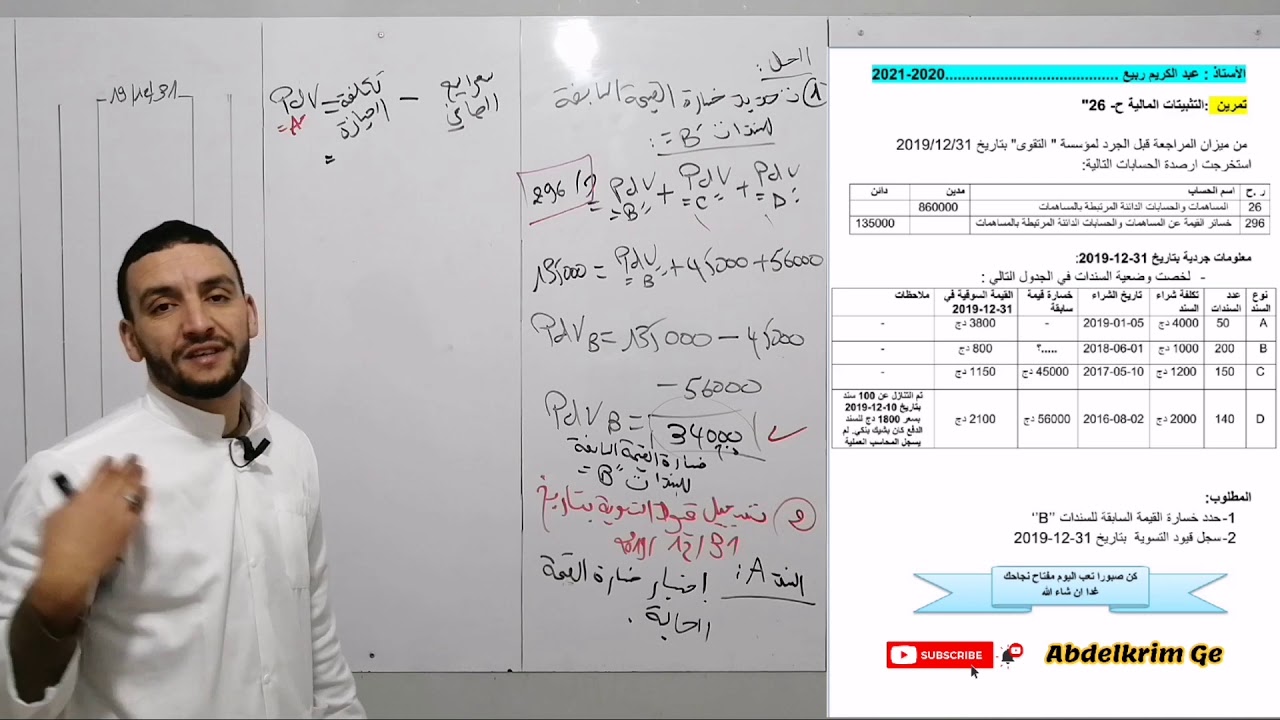 الأستاذ : عبد الكريم ربيع ........................................2020-2021
تمرين :التثبيتات المالية ح- 26"
من ميزان المراجعة قبل الجرد لمؤسسة " التقوى" بتاريخ 2019/12/31
استخرجت ارصدة الحسابات التالية:
ر.ح اسم الحساب مدين دائن
26 المساهمات والحسابات الدائنة المرتبطة بالمساهمات 860000
296 خسائر القيمة عن المساهمات والحسابات الدائنة المرتبطة بالمساهمات 135000
معلومات جردية بتاريخ 31-12-2019:
- لخصت وضعية السندات في الجدول التالي :
نوع السند عدد السندات تكلفة شراء السند تاريخ الشراء خسارة قيمة سابقة القيمة السوقية في 31-12-2019 ملاحظات
A 50 4000 دج 2019-01-05 - 3800 دج -
B 200 1000 دج 2018-06-01 ؟..... 800 دج -
C 150 1200 دج 2017-05-10 45000 دج 1150 دج -
D 140 2000 دج 2016-08-02 56000 دج 2100 دج تم التنازل عن 100 سند
بتاريخ 10-12-2019
بسعر 1800 دج للسند
الدفع كان بشيك بنكي. لم
يسجل المحاسب العملية
المطلوب:
1-حدد خسارة القيمة السابقة للسندات "B"
2-سجل قيود التسوية بتاريخ 31-12-2019
كن صبورا تعب اليوم مفتاح نجاحك
غدا ان شاء الله
SUBSCRIBE
Abdelkrim Ge
الحل :
① تحديد خسارة القيمة السابقة
للسندات "B" :
296/ = PdV "B" + PdV "C" + PdV "D"
135000 = PdV "B" + 45000 + 56000
PdV B = 135000 - 45000
- 56000
PdV B = 34000
خسارة القيمة السابقة
للسندات "B"
② تسجيل قيود التسوية بتاريخ
2019/12/31
السند A : اختبار خسارة القيمة
PdV "A" = تكلفة الحيازة -
=
19/12/31